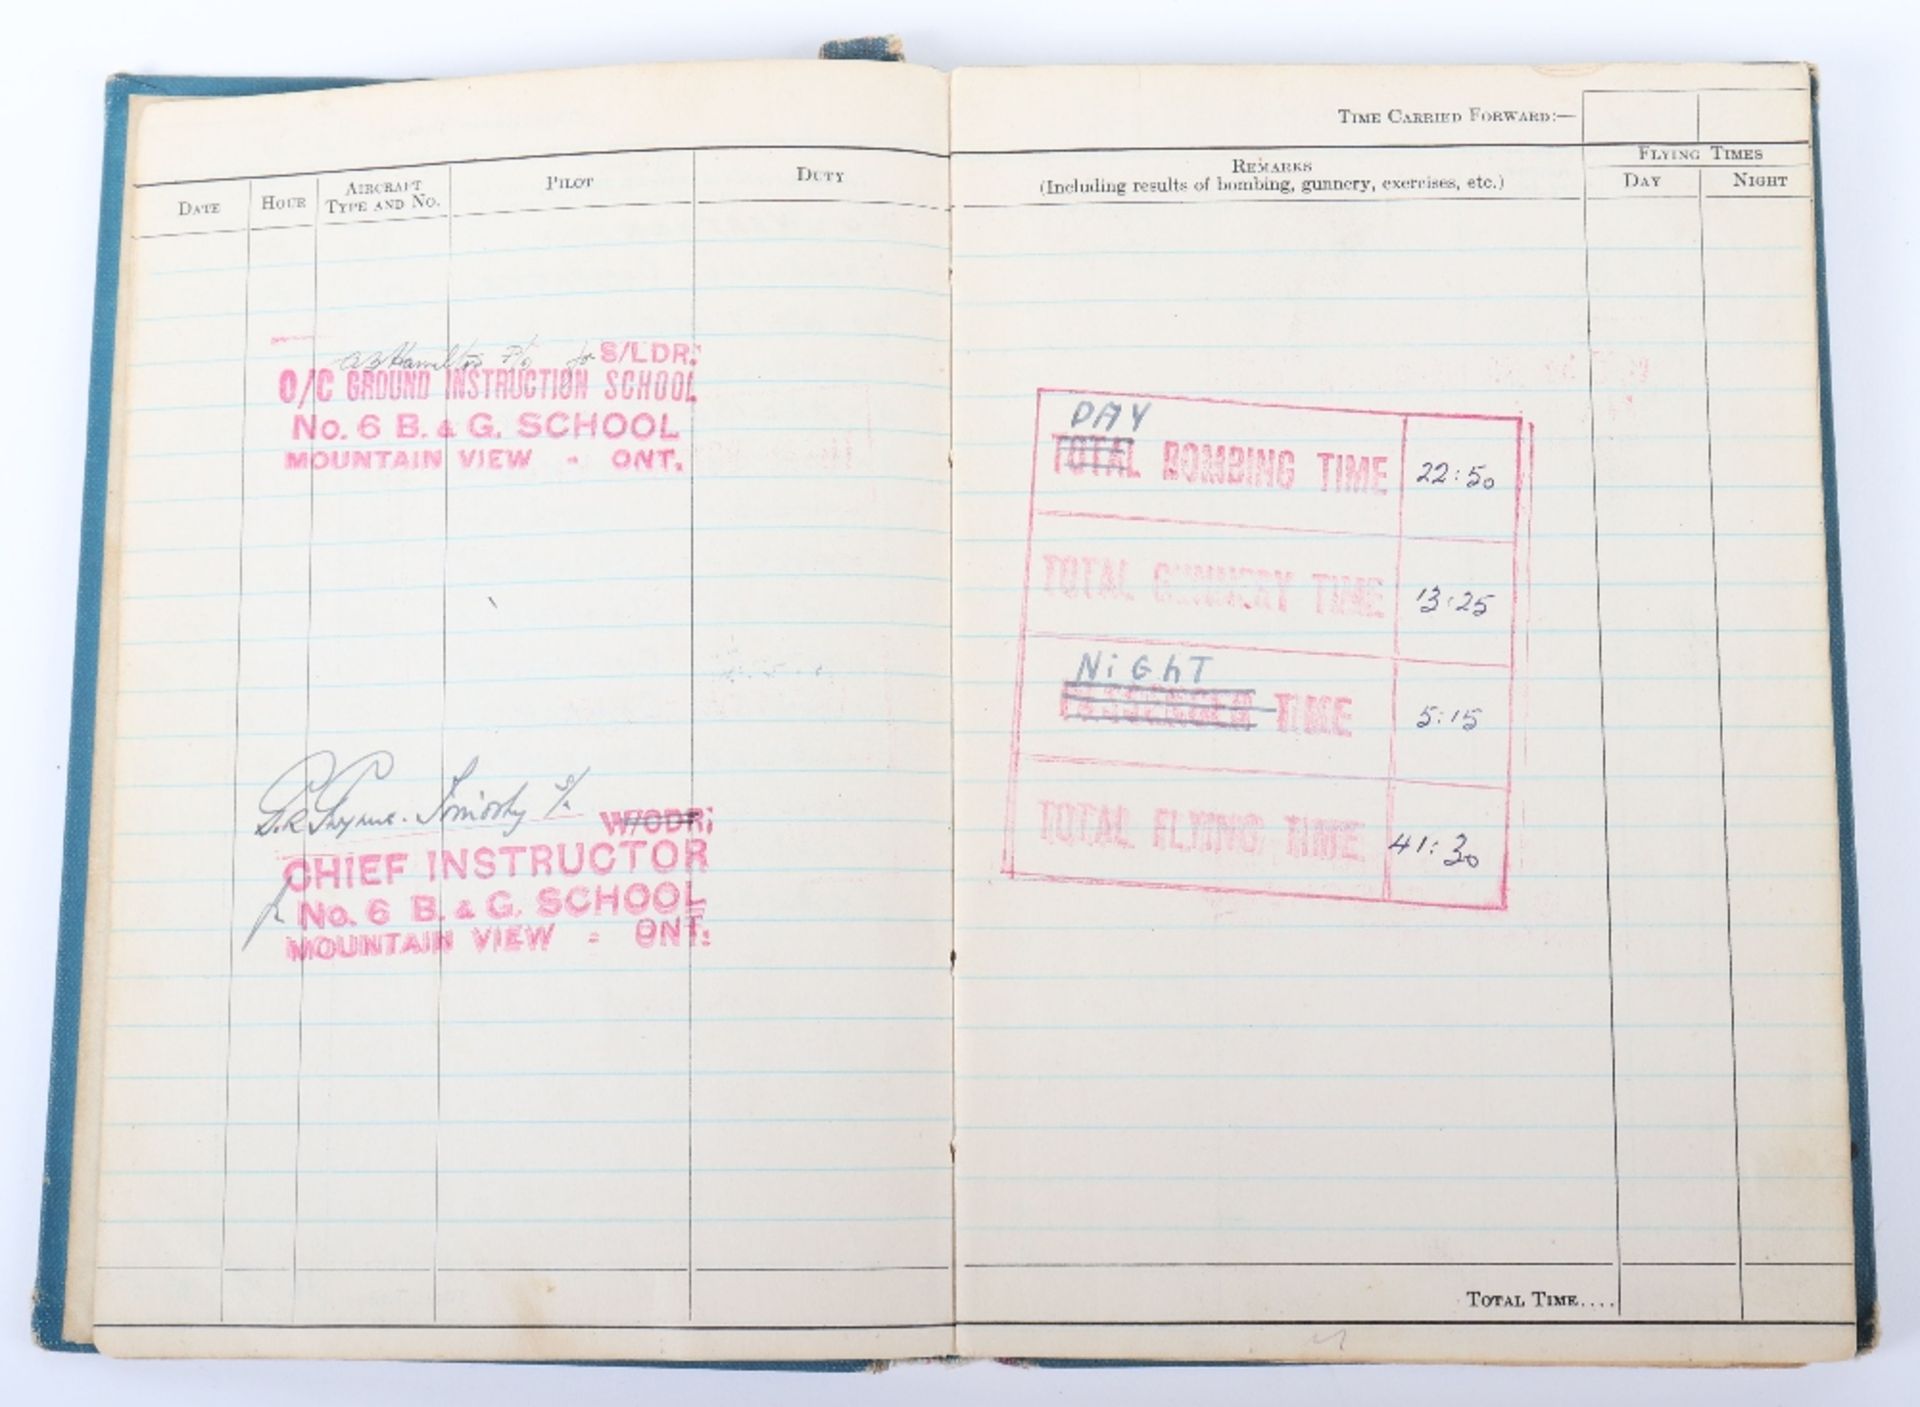 DATE HOUR AIRCRAFT TYPE AND NO. PILOT DUTY
S/LDR.
O/C GROUND INSTRUCTION SCHOOL
No. 6 B. & G. SCHOOL
MOUNTAIN VIEW - ONT.
W/CDR.
CHIEF INSTRUCTOR
No. 6 B. & G. SCHOOL
MOUNTAIN VIEW - ONT.
TIME CARRIED FORWARD:—
REMARKS
(Including results of bombing, gunnery, exercises, etc.)
FLYING TIMES
DAY NIGHT
DAY
TOTAL BOMBING TIME 22:50
TOTAL GUNNERY TIME 13:25
NiGhT
PASSENGER TIME 5:15
TOTAL FLYING TIME 41:30
TOTAL TIME....